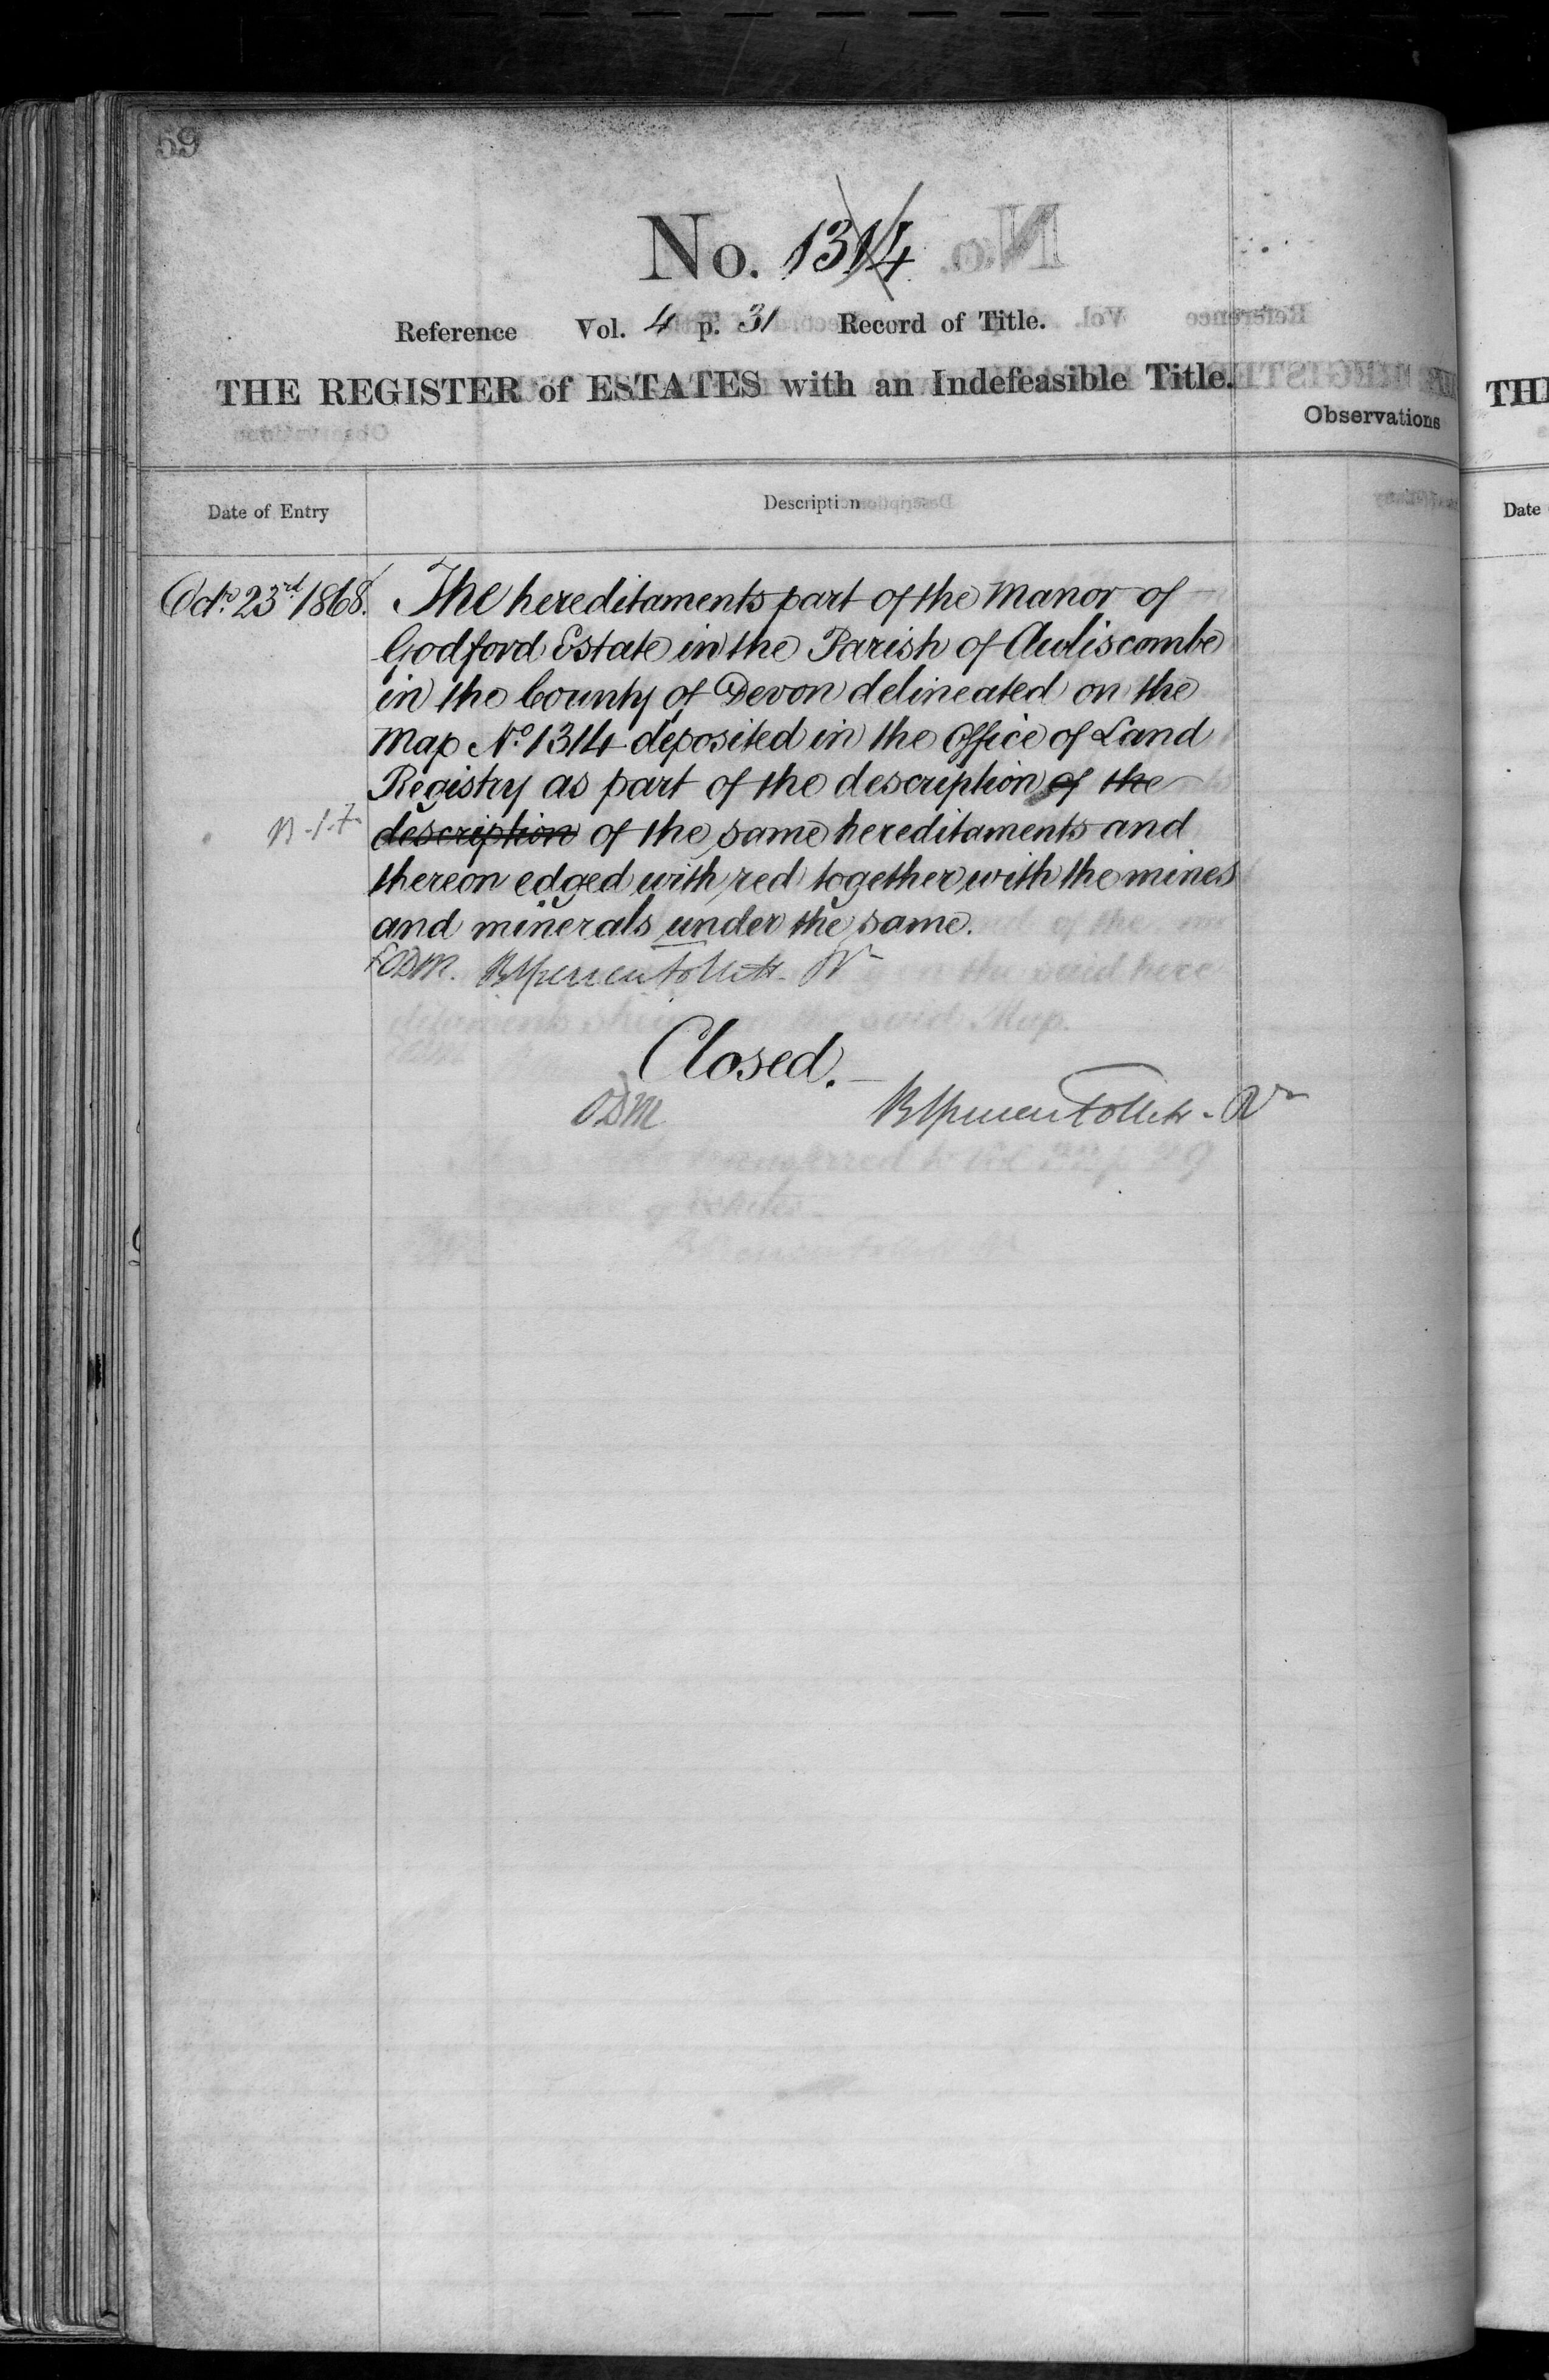 59
No. 1314
Reference Vol. 4 p. 31 Record of Title.
THE REGISTER of ESTATES with an Indefeasible Title.
Observations
Date of Entry
Description
Octr. 23rd 1868. The hereditaments part of the Manor of
Godford Estate in the Parish of Awliscombe
in the County of Devon delineated on the
Map No. 1314 deposited in the Office of Land
Registry as part of the description of the
description of the same hereditaments and
thereon edged with red together with the mines
and minerals under the same.
ODM.
Closed.
ODM
TH
Date